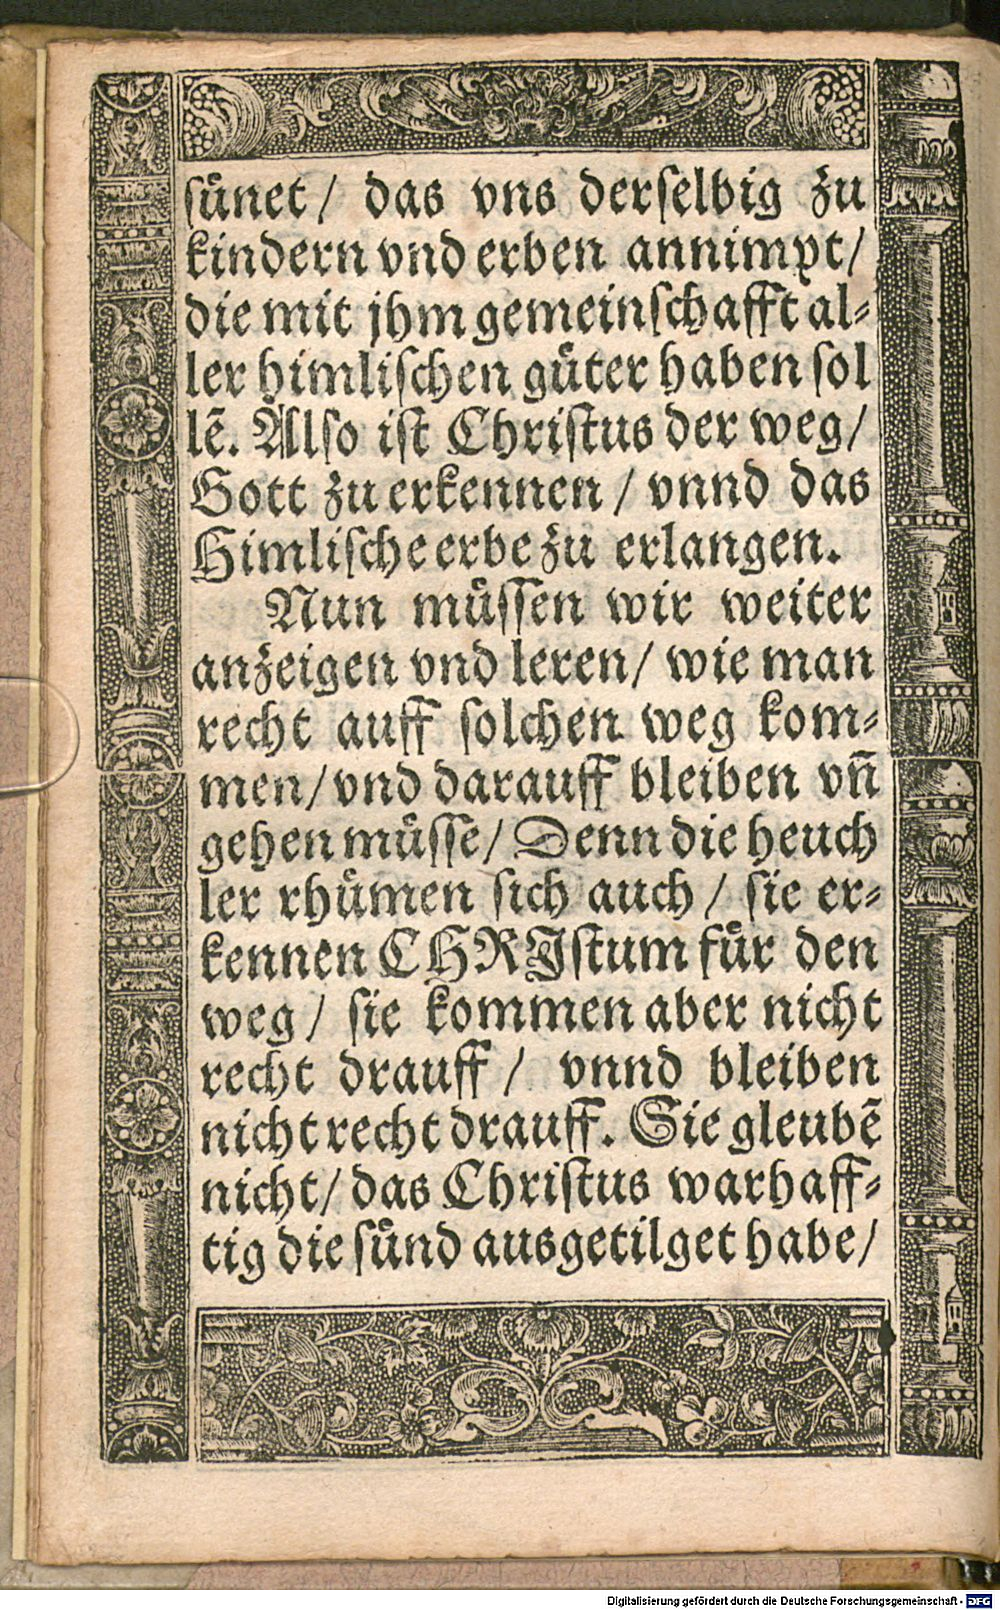 suͤnet/ das vns derſelbig zu
kindern vnd erben annimpt/
die mit jhm gemeinſchafft al⸗
ler himliſchen guͤter haben ſol
lẽ. Alſo iſt Chriſtus der weg/
Gott zu erkennen / vnnd das
Himliſche erbe zu erlangen.
Nun muͤſſen wir weiter
anzeigen vnd leren/ wie man
recht auff ſolchen weg kom⸗
men/ vnd darauff bleiben vñ
gehen muͤſſe/ Denn die heuch
ler rhuͤmen ſich auch / ſie er⸗
kennen CHRJſtum fuͤr den
weg/ ſie kommen aber nicht
recht drauff / vnnd bleiben
nicht recht drauff. Sie gleubẽ
nicht/ das Chriſtus warhaff⸗
tig die ſuͤnd ausgetilget habe/
Digitalisierung gefördert durch die Deutsche Forschungsgemeinschaft - DFG